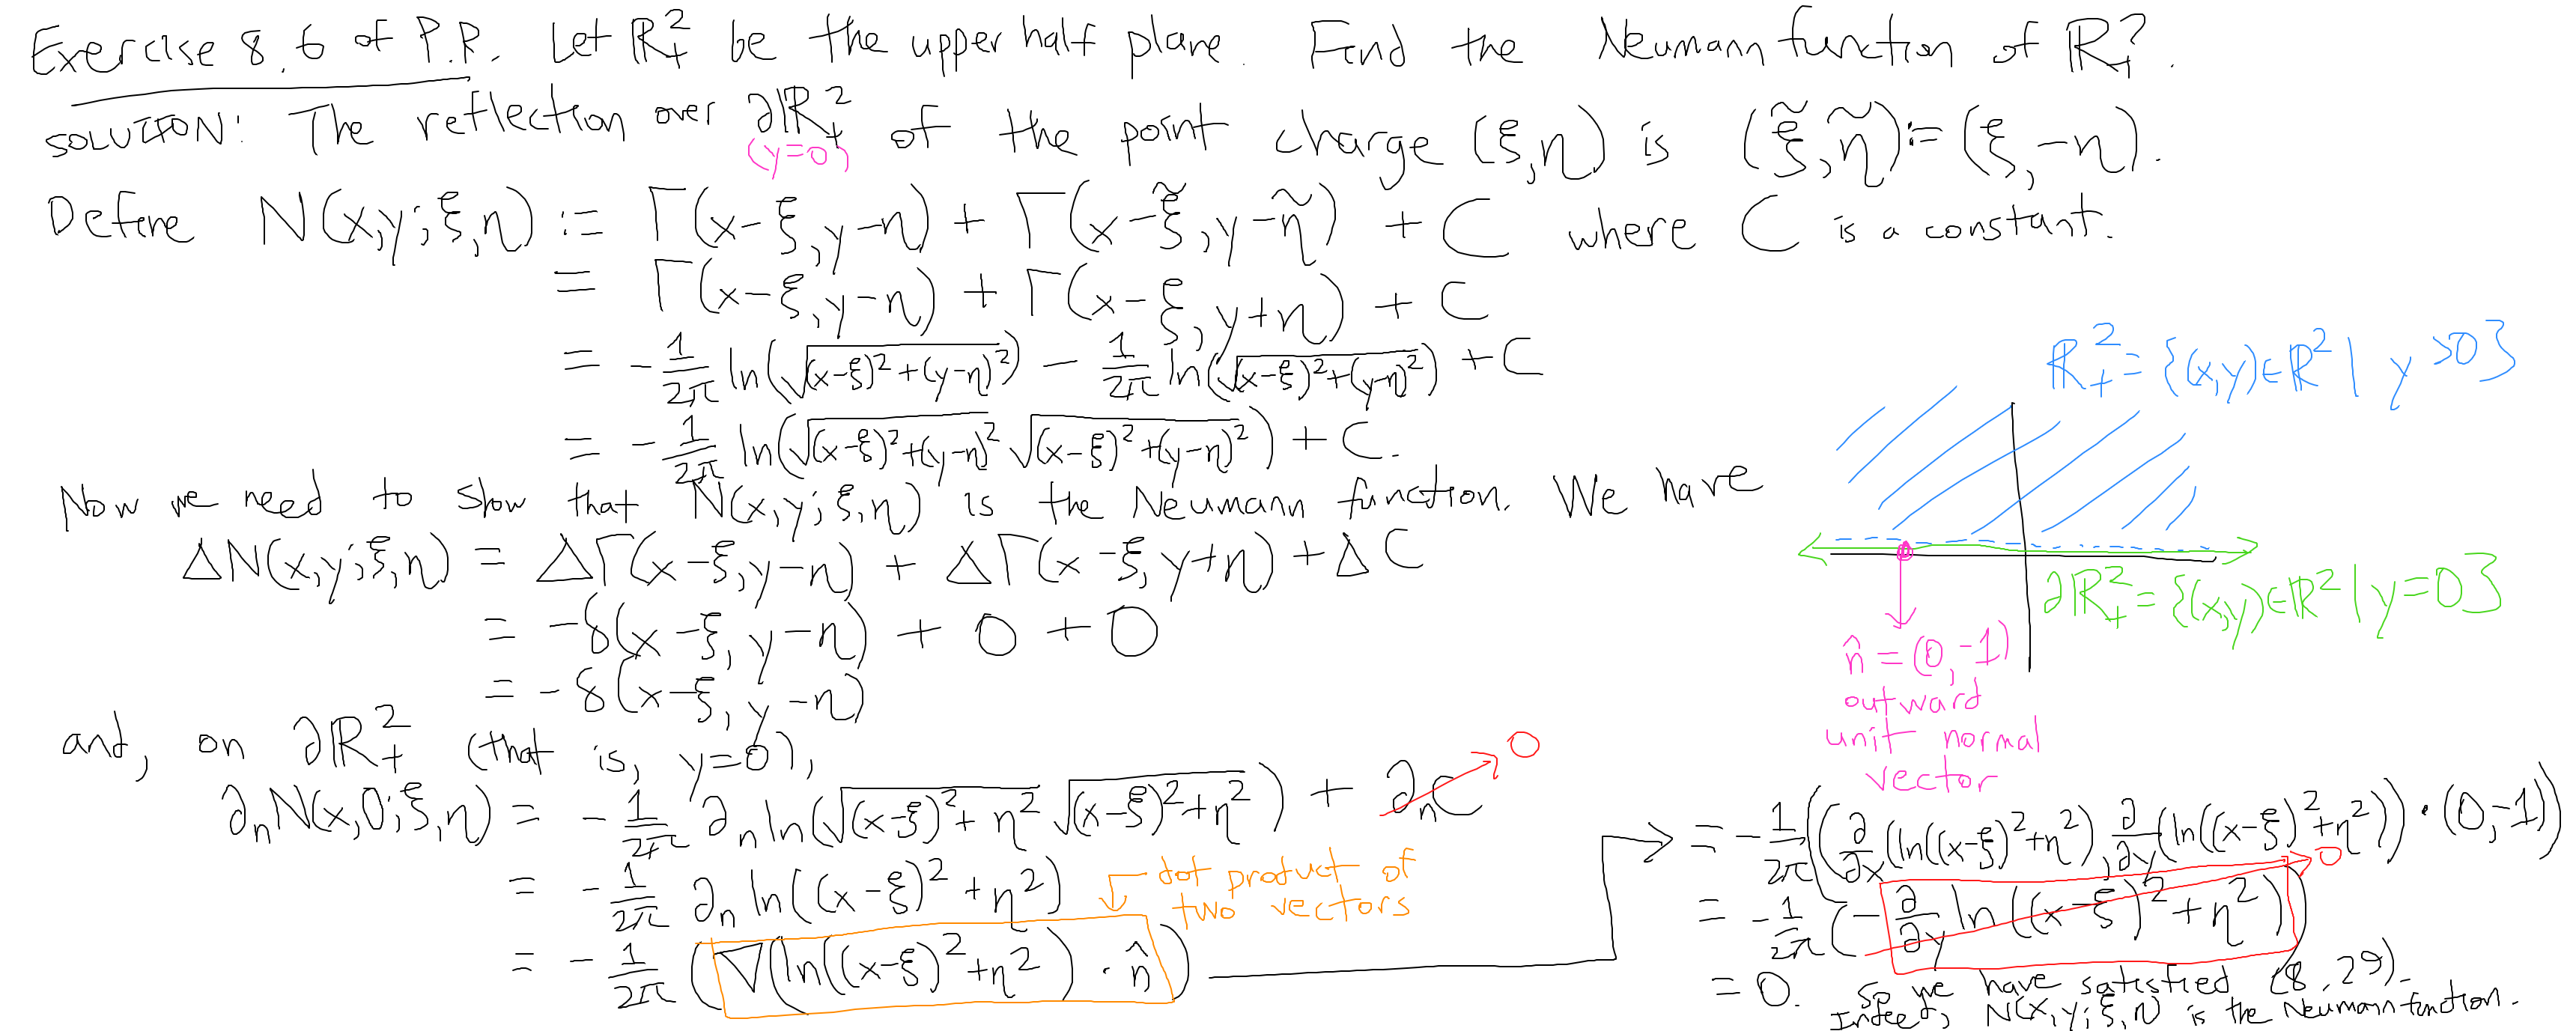 Exercise 8.6 of P.R. Let ℝ₊² be the upper half plane. Find the Neumann function of ℝ₊².
SOLUTION: The reflection over ∂ℝ₊² of the point charge (ξ,η) is (ξ̃,η̃):=(ξ,-η).
(y=0)
Define N(x,y;ξ,η) := Γ(x-ξ,y-η) + Γ(x-ξ̃,y-η̃) + C where C is a constant.
= Γ(x-ξ,y-η) + Γ(x-ξ,y+η) + C
= -1/2π ln(√((x-ξ)²+(y-η)²)) - 1/2π ln(√((x-ξ)²+(y-η)²)) + C
= -1/2π ln(√((x-ξ)²+(y-η)²) √((x-ξ)²+(y-η)²)) + C.
Now we need to show that N(x,y;ξ,η) is the Neumann function. We have
ΔN(x,y;ξ,η) = ΔΓ(x-ξ,y-η) + ΔΓ(x-ξ,y+η) + ΔC
= -δ(x-ξ,y-η) + 0 + 0
= -δ(x-ξ,y-η)
and, on ∂ℝ₊² (that is, y=0),
∂ₙN(x,0;ξ,η) = -1/2π ∂ₙ ln(√((x-ξ)²+η²) √((x-ξ)²+η²)) + ∂ₙC 0
= -1/2π ∂ₙ ln((x-ξ)²+η²)
= -1/2π (∇(ln((x-ξ)²+η²) · n̂)
dot product of
two vectors
ℝ₊² = {(x,y)∈ℝ² | y>0}
∂ℝ₊² = {(x,y)∈ℝ² | y=0}
n̂ = (0,-1)
outward
unit normal
vector
= -1/2π((∂/∂x(ln((x-ξ)²+η²), ∂/∂y(ln((x-ξ)²+η²))·(0,-1))
= -1/2π(-∂/∂y ln((x-ξ)²+η²)) 0
= 0. So we have satisfied (8.29).
Indeed, N(x,y;ξ,η) is the Neumann function.